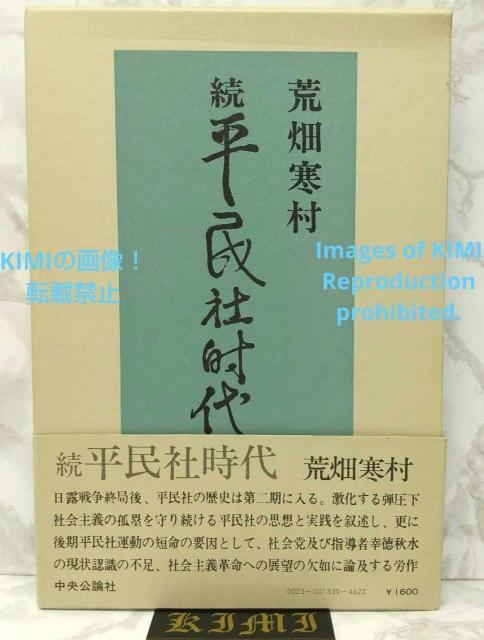 荒畑寒村
続 平民社時代
KIMIの画像！
転載禁止
Images of KIMI
Reproduction
prohibited.
続 平民社時代 荒畑寒村
日露戦争終局後、平民社の歴史は第二期に入る。激化する弾圧下
社会主義の孤塁を守り続ける平民社の思想と実践を叙述し、更に
後期平民社運動の短命の要因として、社会党及び指導者幸徳秋水
の現状認識の不足、社会主義革命への展望の欠如に論及する労作
中央公論社
0023-001339-4622 ￥1600
KIMI